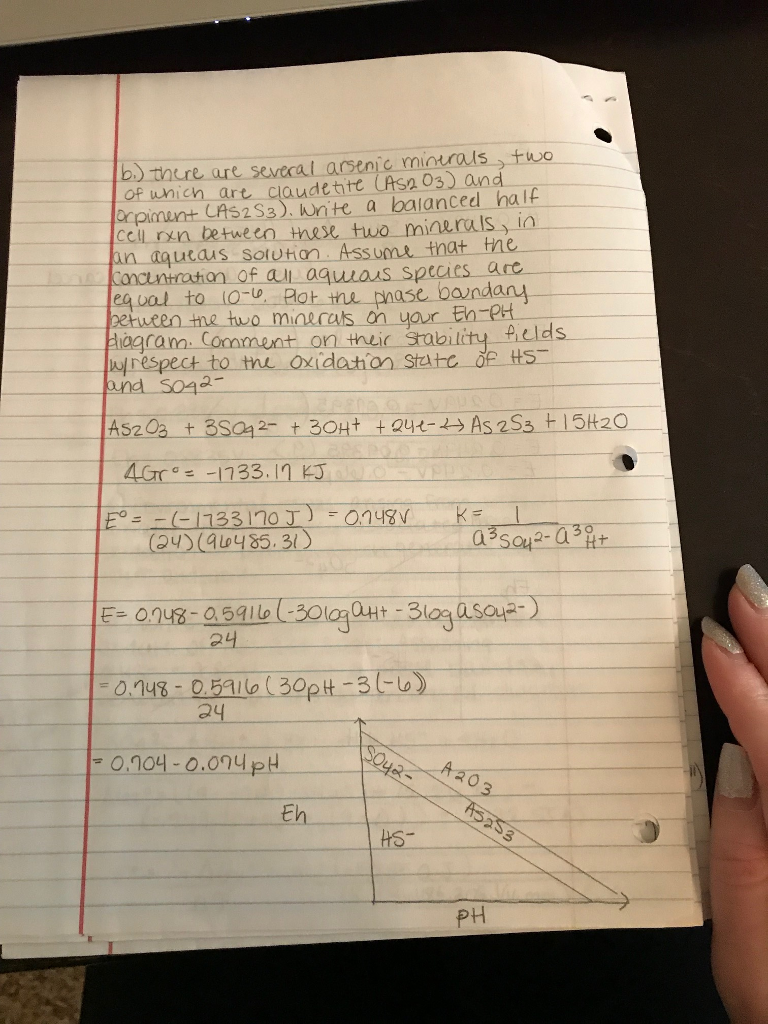 b.) there are several arsenic minerals, two
of which are claudetite (As2O3) and
orpiment (AS2S3). Write a balanced half
cell rxn between these two minerals, in
an aqueous solution. Assume that the
concentration of all aqueous species are
equal to 10-6. Plot the phase boundary
between the two minerals on your Eh-pH
diagram. Comment on their stability fields
w/respect to the oxidation state of HS-
and SO42-
AS2O3 + 3SO42- + 30H+ + 24e- ↔ AS2S3 + 15H2O
ΔGr° = -1733.17 KJ
E° = -(-1733170 J) / (24)(96485.31) = 0.748V K = 1 / a³SO42- a³⁰H+
E = 0.748 - 0.5916/24 (-30log aH+ - 3log aSO42-)
= 0.748 - 0.5916/24 (30pH - 3(-6))
= 0.704 - 0.074pH
SO42-
A2O3
AS2S3
Eh
HS-
pH